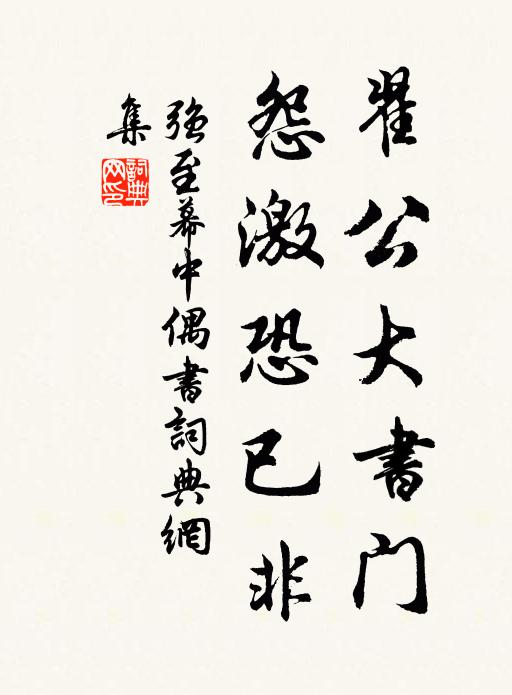 翟公大書门
怨激恐已非
強至幕中偶書詞典網
集
詞典網印